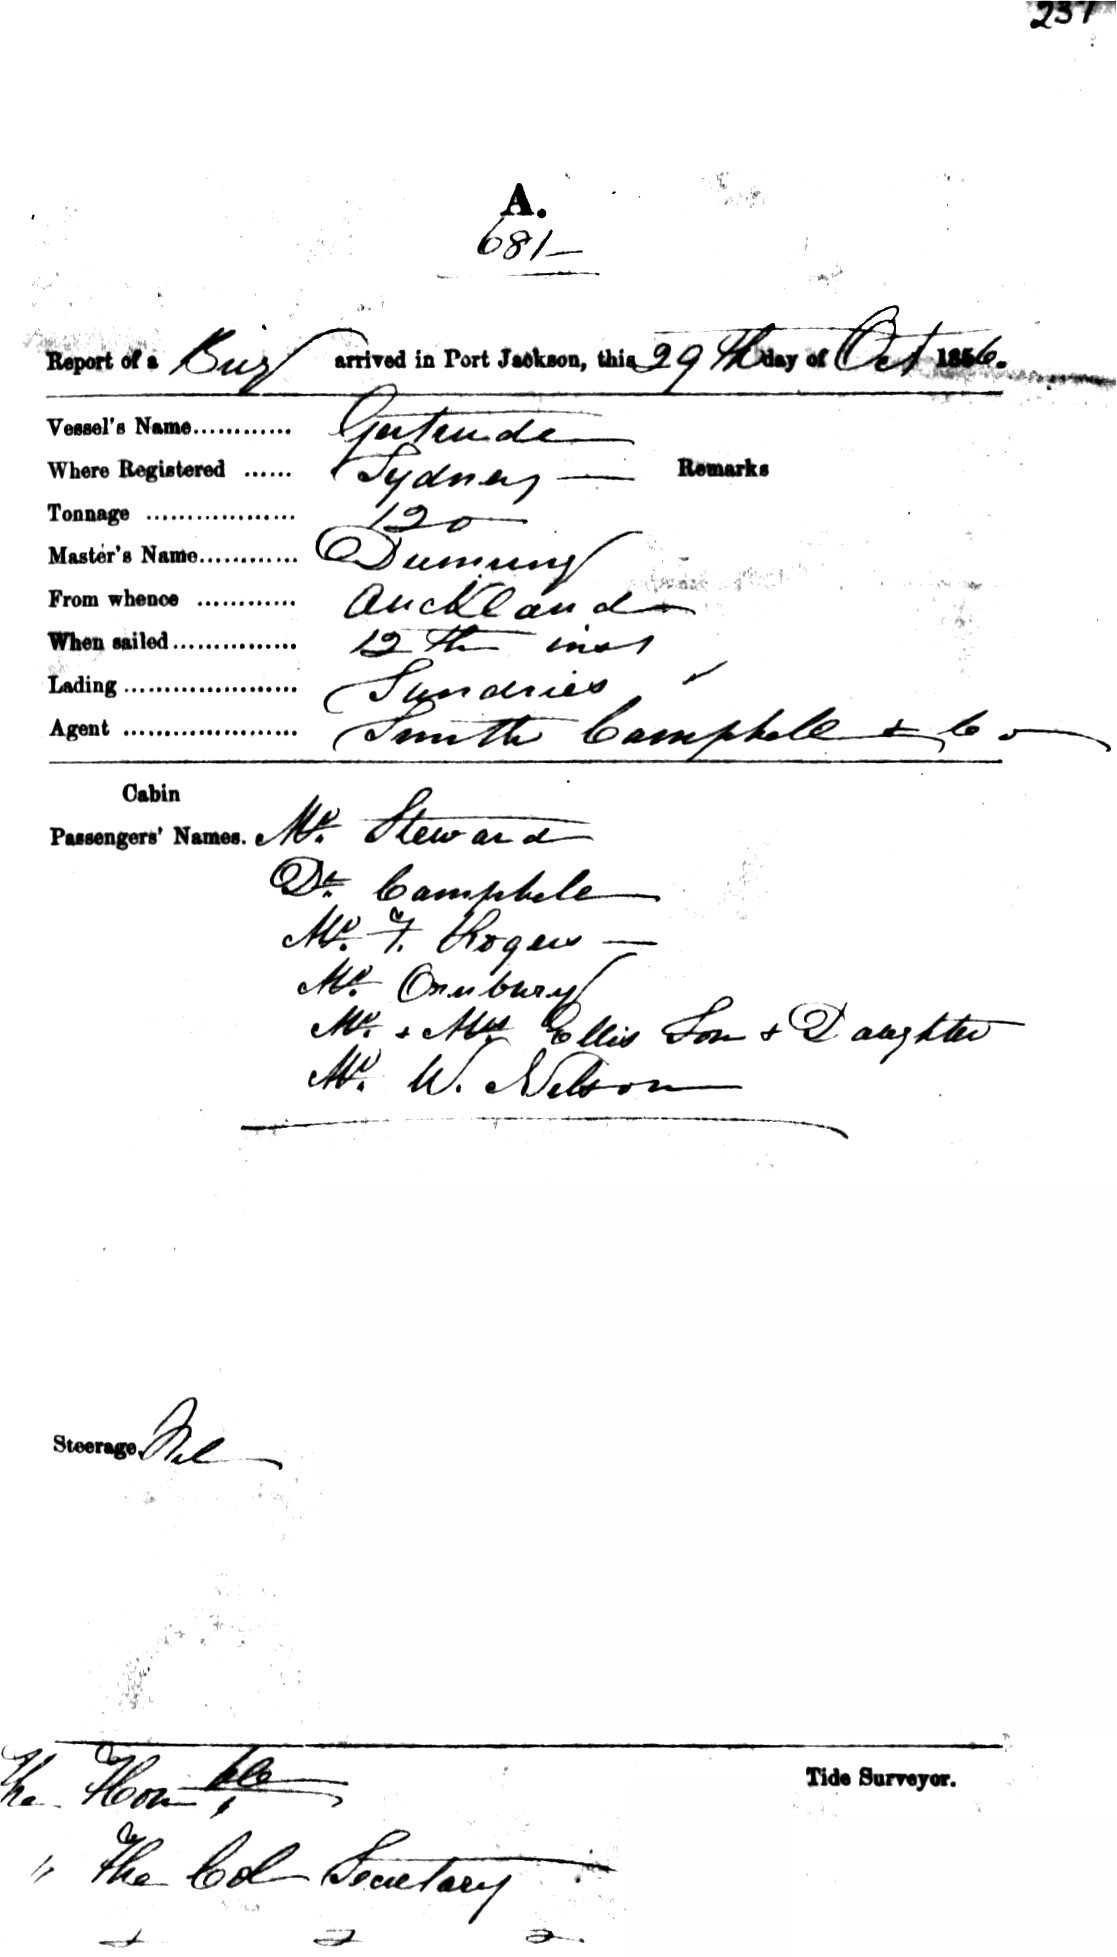 237
A.
681 —
Report of a Brig arrived in Port Jackson, this 29th day of Oct 1856.
Vessel's Name............ Gertrude
Where Registered ...... Sydney — Remarks
Tonnage .................. 120
Master's Name............ Dunning
From whence ............ Auckland
When sailed............... 12th inst
Lading ..................... Sundries
Agent ..................... Smith Campbell & Co
Cabin
Passengers' Names. Mr. Steward
Dr. Campbell
Mr. F. Rogers —
Mr.
Mr. & Mrs Ellis Son & Daughter
Mr. W. Nelson
Steerage. Nil
The Honble
Tide Surveyor.
" The Col Secretary